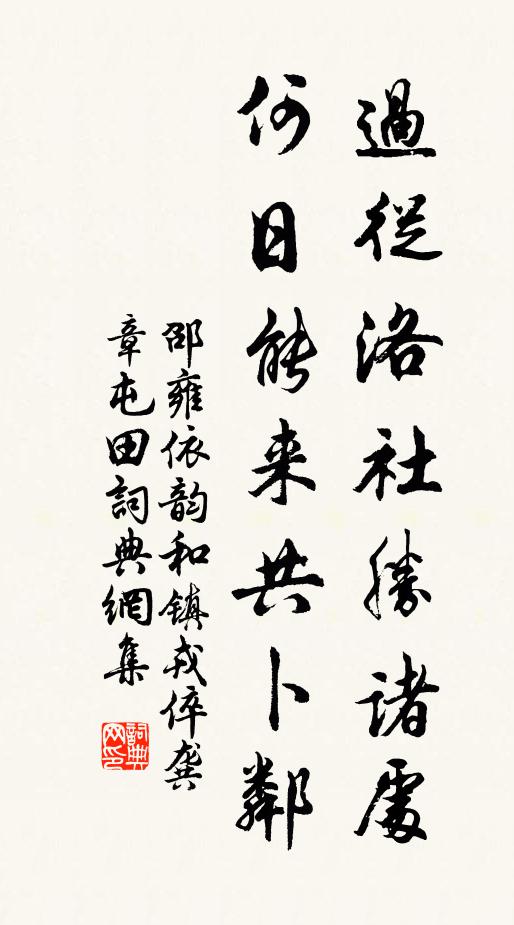 過從洛社勝諸處
何日能来共卜鄰
邵雍依韵和鎮戎倅龔
章屯田詞典網集
詞典网印